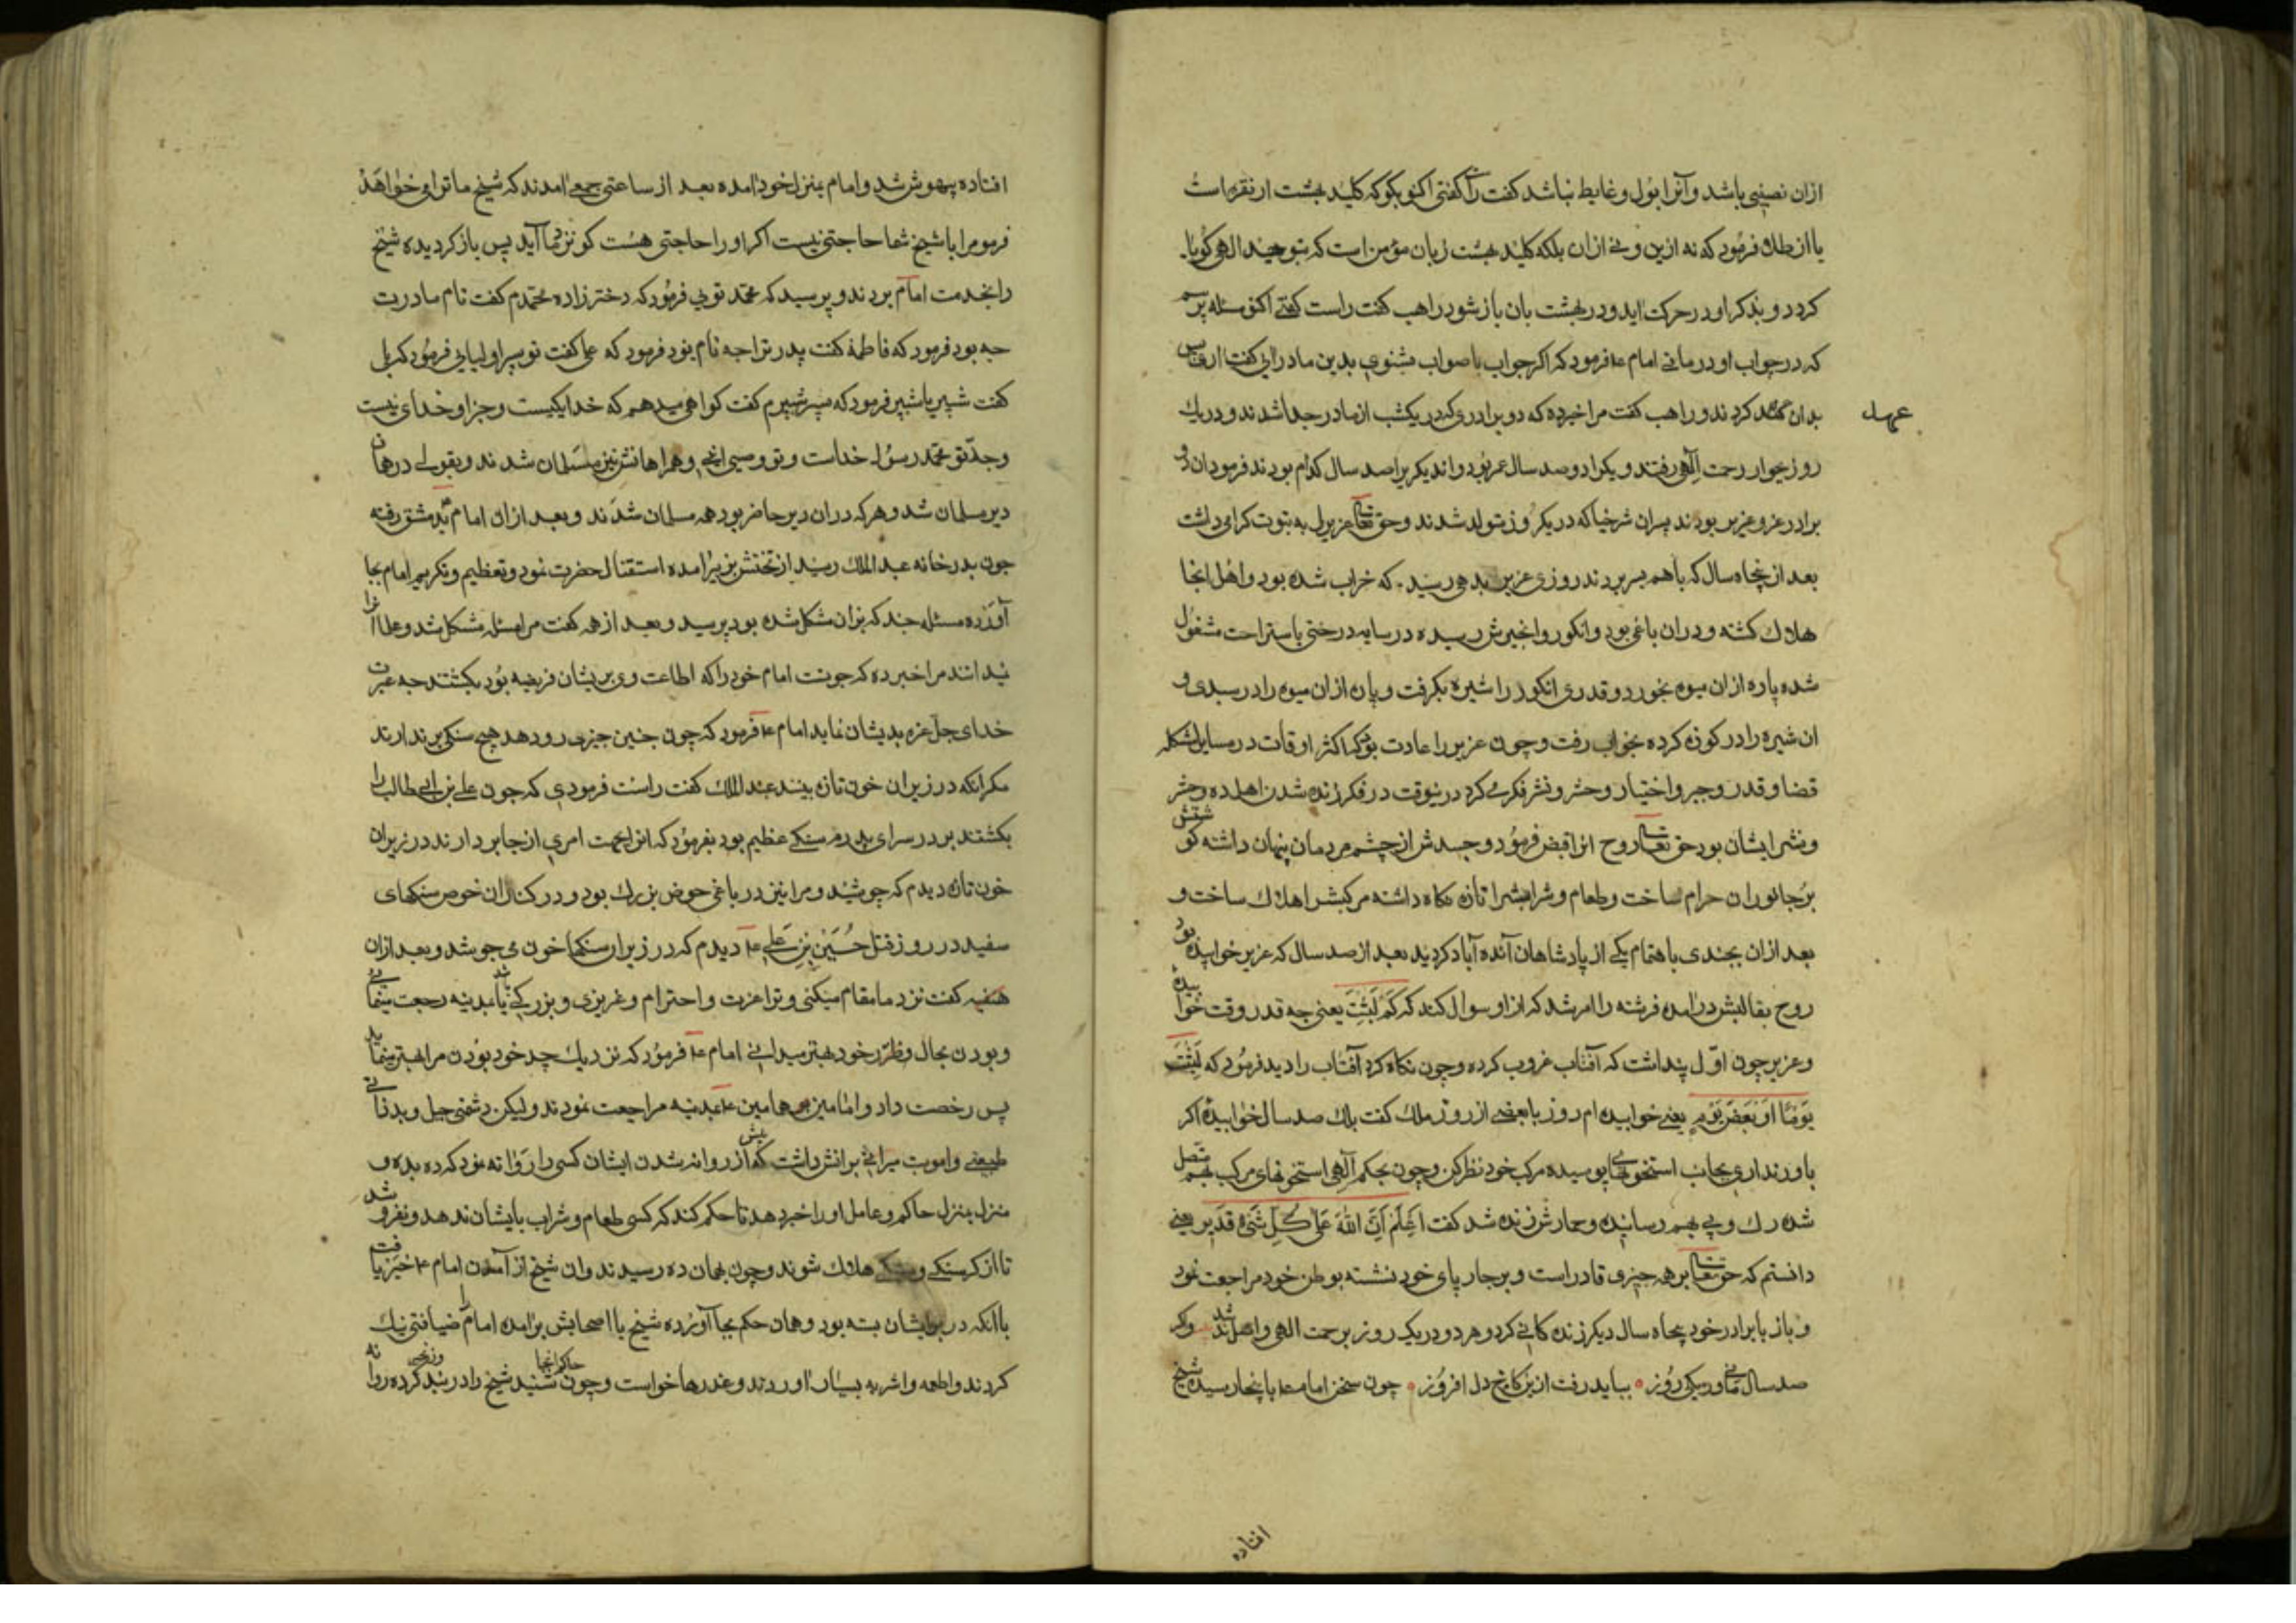 ازان نصیبی باشد و آنرا بول و غایط نباشد کفت راست کفتی اکنو بکو که کلید بهشت از نقره است
یا از طلا فرمود که نه ازین و نی ازان بلکه کلید بهشت زبان مؤمن است که بتوحید الهی کویا
کردد و بذکر او در حرکت اید و در بهشت بان باز شود راهب کفت راست کفتی اکنو مسئله پرسم
که در جواب او درمانی امام ع فرمود که اکر جواب با صواب بشنوی بدین ما درایی کفت اری پس
عهد
بدان عهد کردند و راهب کفت مرا خبرده که دو برادری که در یکشب از مادر جدا شدند و در یک
روز بجوار رحمت آلهی رفتند و یکرا دوصد سال عمر بود و اندیکریرا صد سال کدام بودند فرمود ان دو
برادر عزو عزیر بودند پسران شرخیا که در یکروز متولد شدند و حق تعالی عزیرل به نبوت کرامی داشت
بعد از پنجاه سال که باهم بسر بردند روزی عزیر بدهی رسید که خراب شده بود و اهل انجا
هلاک کشته و دران باغی بود و انکور و انجیرش رسیده در سایه درختی باستراحت مشغول
شده پاره ازان میوه بخورد و قدری انکور را شیره بکرفت و پاره ازان میوه را در سبدی و
ان شیره را در کوزه کرده بخواب رفت و چون عزیر را عادت بود که اکثر اوقات در مسایل مشکله
قضا و قدر و جبر و اختیار و حشر و نشر فکر می کرد درینوقت در فکر زنده شدن اهل ده و حشر
و نشر ایشان بود حق تعالی روح انرا قبض فرمود و جسدش از چشم مردمان پنهان داشته کوشتش
بر جانوران حرام ساخت و طعام و شرابشرا تازه نکاه داشته مرکبش را هلاک ساخت و
بعد ازان بچندی باهتمام یکی از پادشاهان آنده آباد کردید بعد از صد سال که عزیر خوابیده بود
روح بقالبش درامده فرشته را امر شد که از او سوال کند که کم لبثت یعنی چه قدر وقت خوابیدی
و عزیر چون اوّل پنداشت که آفتاب غروب کرده و چون نکاه کرد آفتاب را دید فرمود که لبثت
یوماً او بعض یوم یعنی خوابیده ام روز یا بعضی از روز ملک کفت بلک صد سال خوابیدۀ اکر
باور نداری بجانب استخوانهای پوسیده مرکب خود نظر کن و چون بحکم آلهی استخوانهای مرکب بهم متصل
شده رک و پی بهم رسانیده و حمارش زنده شد کفت اعلم انّ الله علی کل شیء قدیر یعنی
دانستم که حق تعالی بر همه چیزی قادر است و بر چارپای خود نشسته بوطن خود مراجعت نمود
و باز با برادر خود پنجاه سال دیکر زنده کانی کرد و هر دو در یک روز برحمت الهی واصل شدند وکر
صد سال مانی ور یکی روز • بباید رفت ازین کاخ دل افروز • چون سخن امام ع باینجا رسید شیخ
افتاده
افتاده بیهوش شد و امام بمنزل خود امده بعد از ساعتی جمعی امدند که شیخ ما ترا می خواهد
فرمو مرا با شیخ شما حاجتی نیست اکر او را حاجتی هست کو نزد ما آید پس باز کردیده شیخ
را بخدمت امام بردند و پرسید که محمد تویی فرمود که دختر زاده محمدم کفت نام مادرت
چه بود فرمود که فاطمه کفت پدر ترا چه نام بود فرمود که علی کفت تو پسر اولیایی فرمود که بل
کفت شبیر یا شبّر فرمود که پسر شبیرم کفت کواهی میدهم که خدا یکیست و جز او خدای نیست
و جدّ تو محمد رسول خداست و تو وصیی انی و همراهانش نیز مسلمان شدند و بقولی درهمان
دیر مسلمان شد و هر که دران دیر حاضر بود همه مسلمان شدند و بعد ازان امام ع بدمشق رفته
چون بدر خانه عبد الملک رسید از تختش بزیر امده استقبال حضرت نمود و تعظیم و تکریم امام بجا
آورده مسئله چند که بران مشکل شده بود پرسید و بعد از همه کفت مرا مسئله مشکل شد و علما انرا
نیدانند مرا خبر ده که چون امت امام خود را که اطاعت وی بریشان فریضه بود بکشتند چه عبرت
خدای جلّ عزه بدیشان نماید امام ع فرمود که چون چنین چیزی رو دهد هیچ سنکی برندارند
مکر انکه در زیر ان خون تازه بینند عبد الملک کفت راست فرمودی که چون علی بن ابی طالب را
بکشتند بر در سرای پدرم سنکی عظیم بود بفرمود که انرا بجهت امری ازجا بردارند در زیر ان
خون تازه دیدم که جوشید و مرا نیز در باغی حوض بزرک بود و در کنار ان حوض سنکهای
سفید در روز قتل حسین بن علی ع دیدم که در زیر ان سنکها خون می جوشد و بعد ازان
کفت نزد ما مقام میکنی و ترا عزت و احترام و عزیزی و بزرکی باشد یا بمدینه رجعت مینمایی
و بودن بحال و ظرر خود بهتر میدانی امام ع فرمود که نزدیک جد خود بودن مرا بهتر مینماید
پس رخصت داد و اما مین همامین ع بمدینه مراجعت نمودند و لیکن دشمنی جبل و بد ذاتی
طبیعی و امویت میراثی برانش داشت که پیش از روانه شدن ایشان کسی را روانه نمود که ده بده و
منزل بمنزل حاکم و عامل او را خبر دهد تا حکم کند که کسی طعام و شراب بایشان ندهد و نفروشد
تا از کرسنکی و تشنکی هلاک شوند و چون بهمان ده رسیدند و ان شیخ از آمدن امام ع خبر یافت
با انکه در بر ایشان بسته بود و همان حکم بجا آورده شیخ با اصحابش برامده امام را ضیافتی نیک
کردند و اطعمه و اشربه بسیار اوردند و عذرها خواست و چون حاکم انجا شنید شیخ را در بند و زنجیر کرده روانه